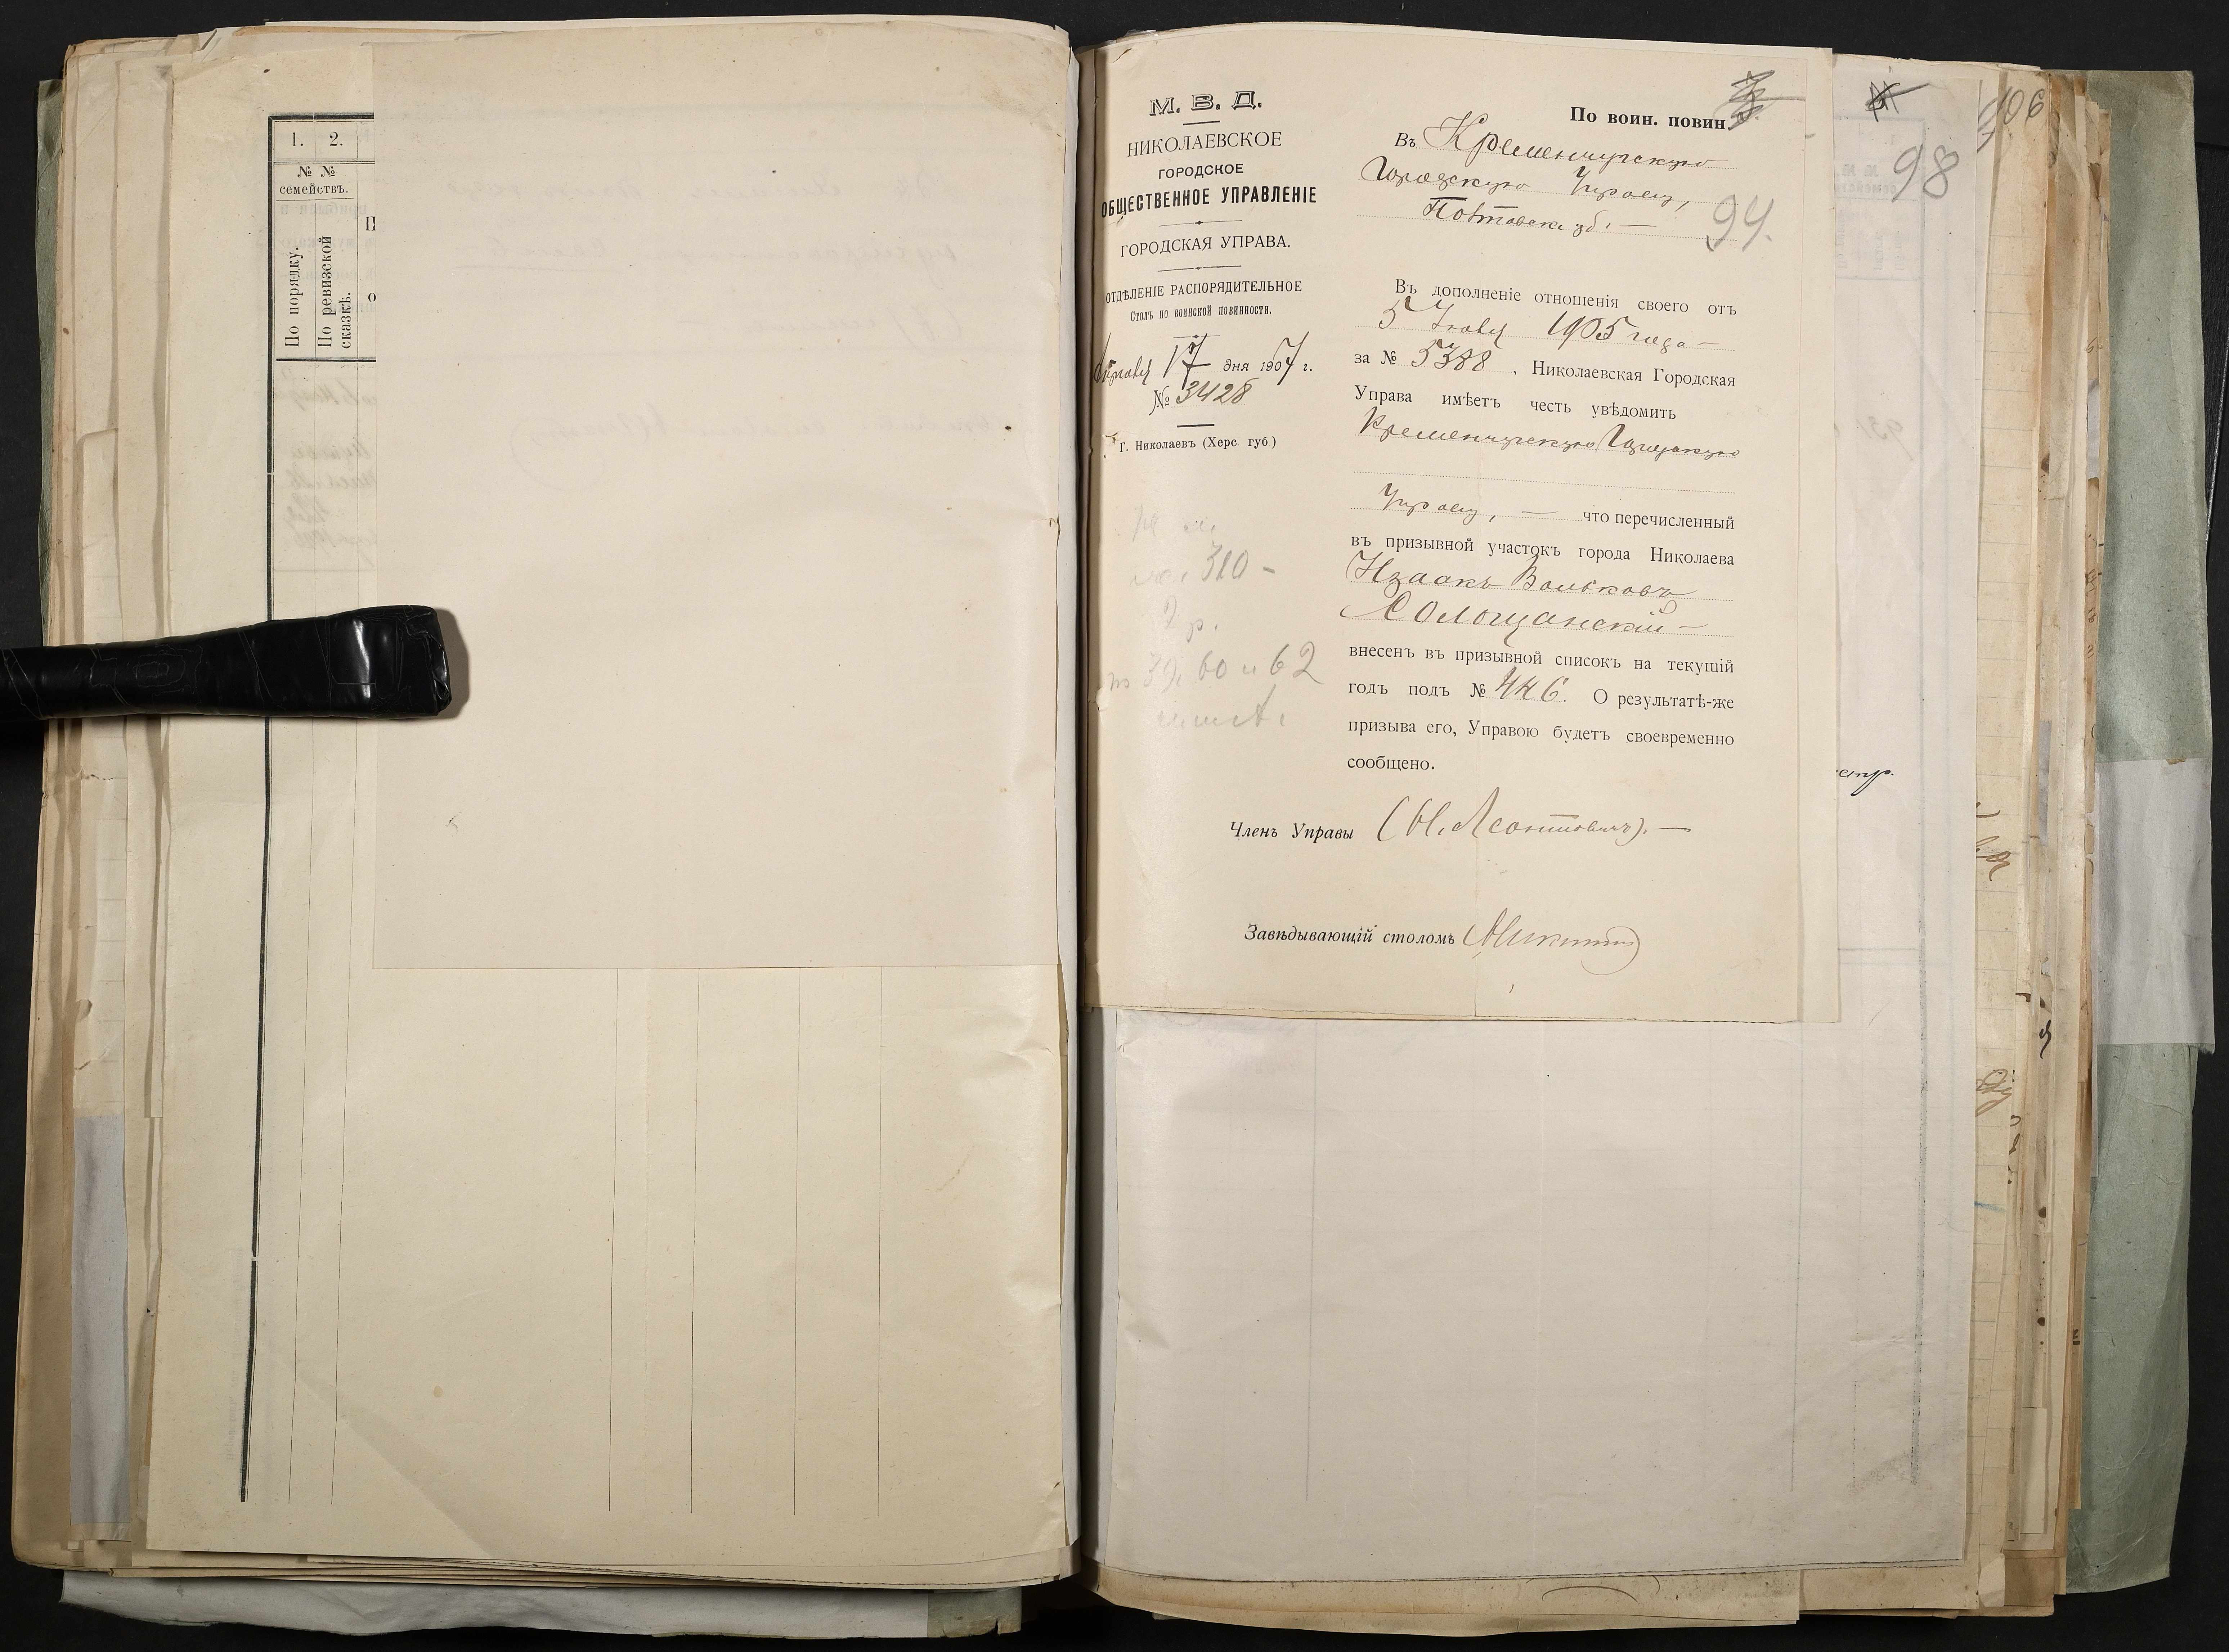 1. 2.
№ №
семействъ.
По порядку.
По ревизской
сказкѣ.
М. В. Д.
НИКОЛАЕВСКОЕ
ГОРОДСКОЕ
ОБЩЕСТВЕННОЕ УПРАВЛЕНІЕ
ГОРОДСКАЯ УПРАВА.
ОТДѢЛЕНІЕ РАСПОРЯДИТЕЛЬНОЕ
Столъ по воинской повинности.
17 дня 1907 г.
№ 3428
Г. Николаевъ (Херс. губ)
310 -
2 р.
39, 60 и 62
По воин. повин
Въ Кременчугскую
Городскую Управу,
Полтавск. губ. —
94.
Въ дополненіе отношенія своего отъ
5 Іюля 1905 года —
за № 5388 , Николаевская Городская
Управа имѣетъ честь увѣдомить
Кременчугскую Городскую
Управу, — что перечисленный
въ призывной участокъ города Николаева
Изаакъ Вольковъ
Солощанскій —
внесенъ въ призывной списокъ на текущій
годъ подъ № 446. О результатѣ-же
призыва его, Управою будетъ своевременно
сообщено.
Членъ Управы (Н. Леонтовичъ). —
Завѣдывающій столомъ (Никитин)
98
106
стр.